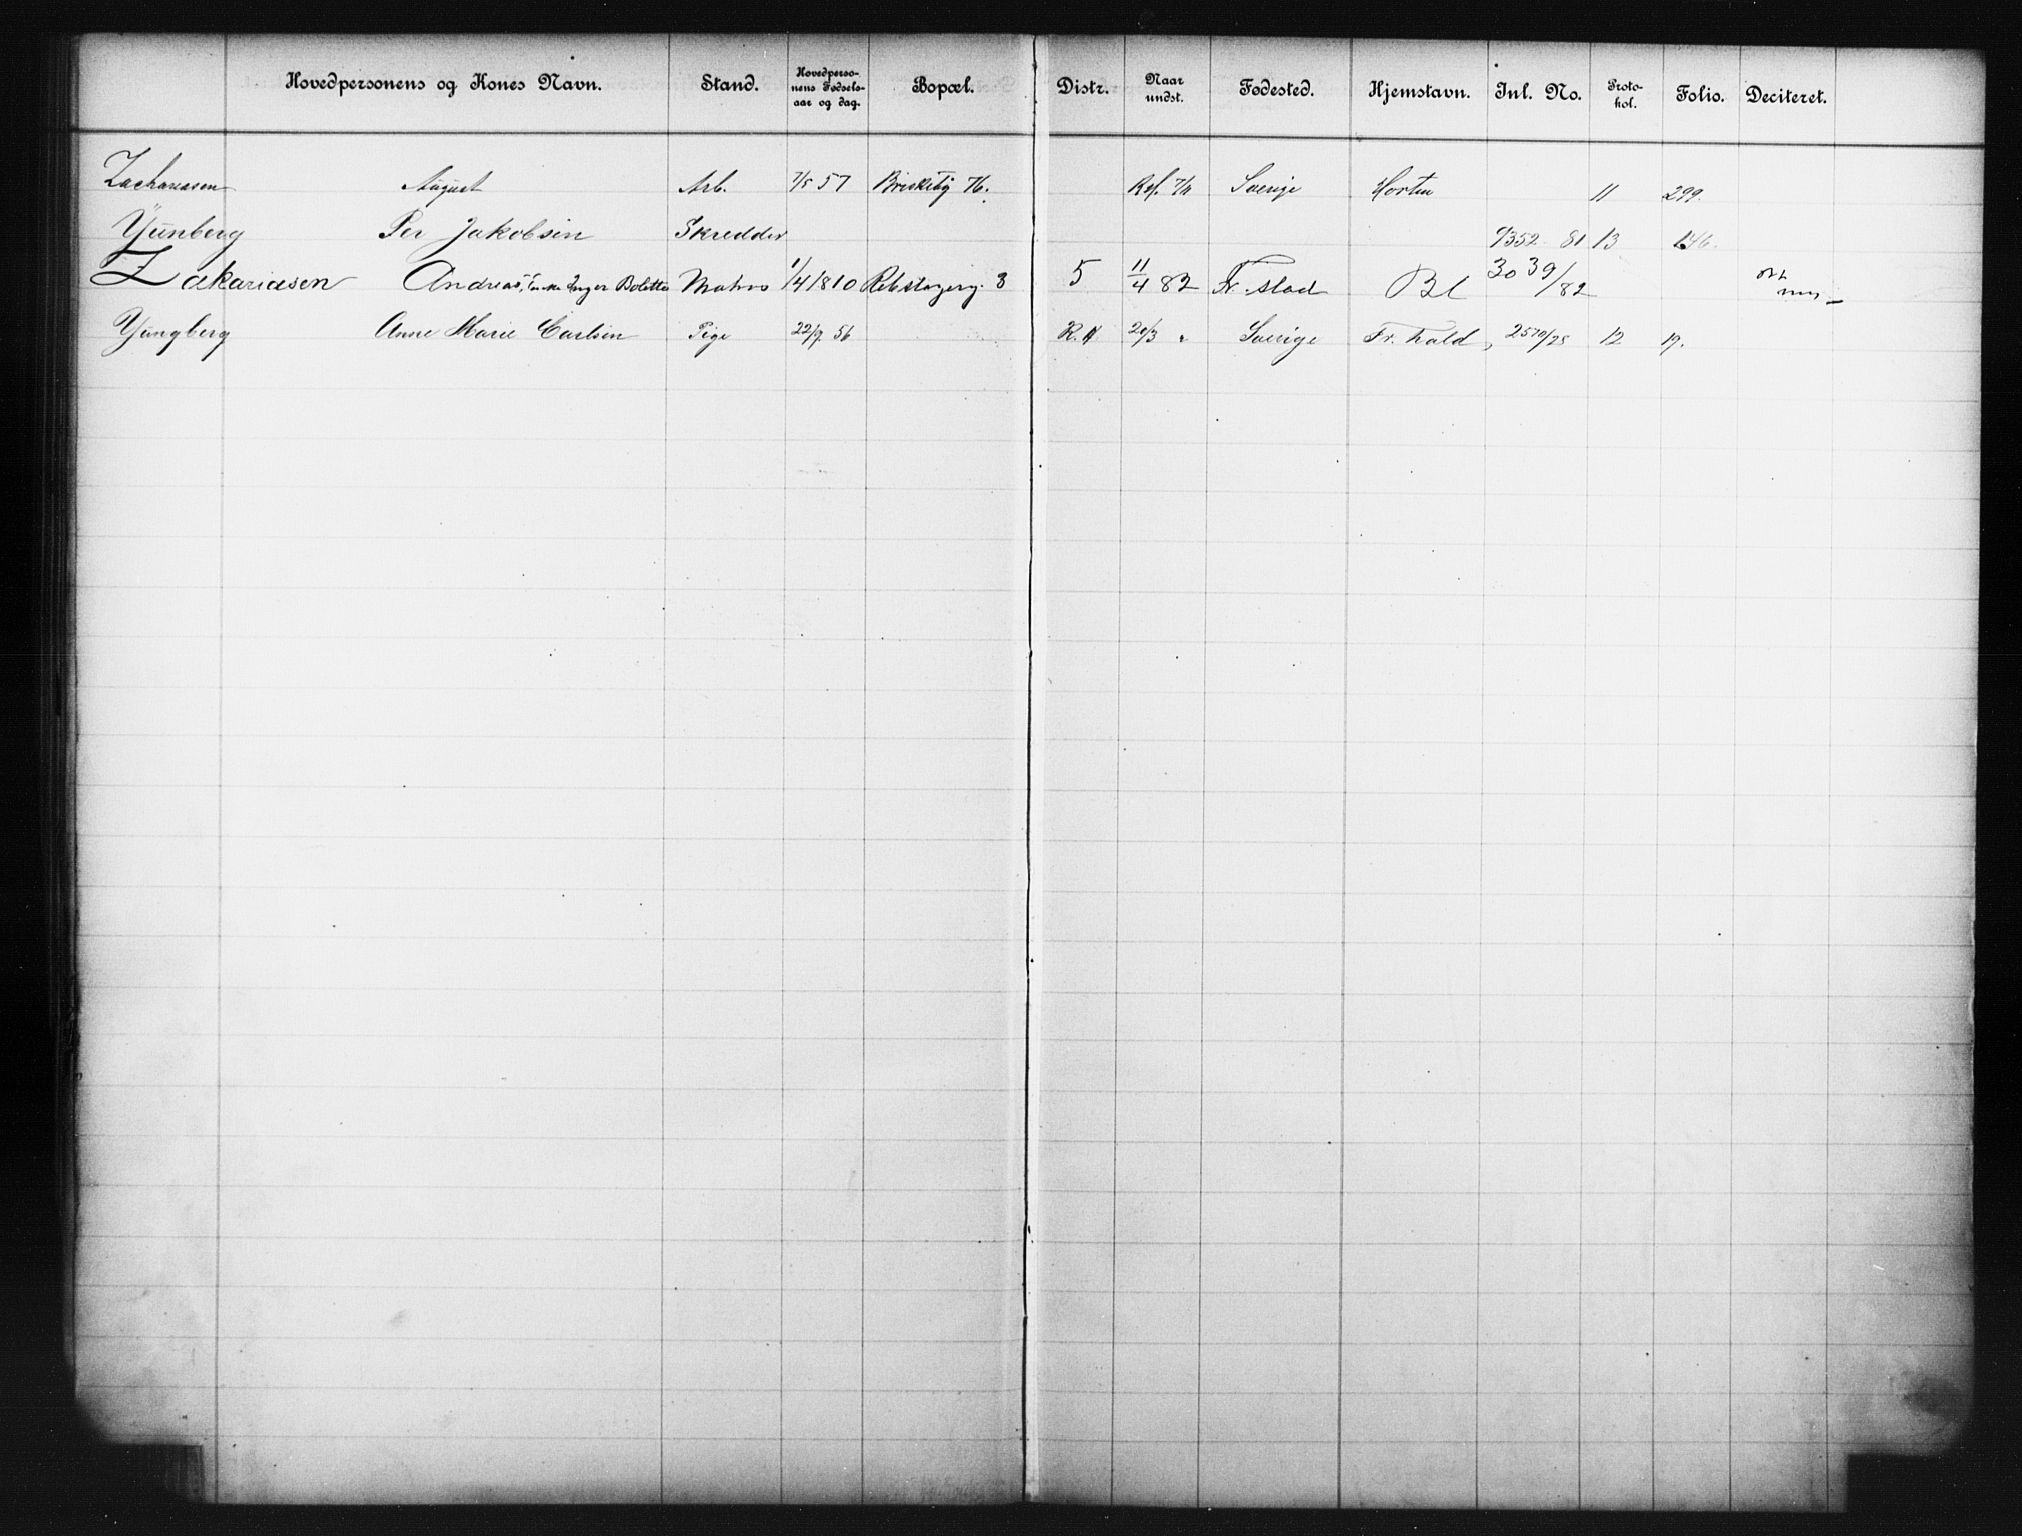 Hovedpersonens og Kones Navn. Stand. Hovedpersonens Fødselsaar og dag. Bopæl. Distr. Naar undst. Fødested. Hjemstavn. Inl. No. Protokol. Folio. Deciteret.
Zachariasen August Arb. 7/5 57 Briskeby 76. Ref. 7/11 Sverige Horten 11 299.
Yünberg Per Jakobsen Skredder 9352 81 13 146.
Zakariasen Andreas, Inger Bolette Matros 1/4 1810 Rebslagerg. 3 5 11/4 82 Fr.stad Bl 3039/82
Yüngberg Anne Marie Carlsen Pige 22/9 56 R. 11 20/3 " Sverige Fr. hald, 2570/25 12 19.